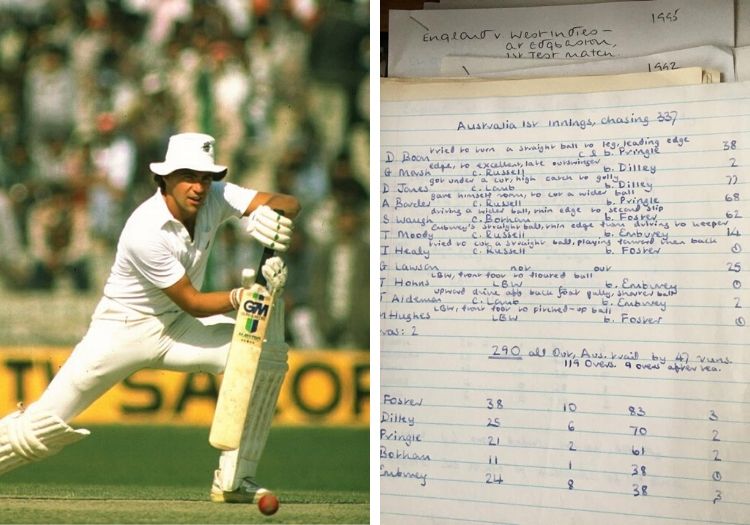 GM
TV SA OR
1995
England v West Indies -
at Edgbaston,
1st Test match
1992
Australia 1st innings, chasing 337
tried to turn a straight ball to leg, leading edge
D. Boon c & b. Pringle 38
edge, to excellent, late outswinger
G. Marsh c. Russell b. Dilley 2
got under a cut, high catch to gully
D Jones c. Lamb b. Dilley 22
gave himself room, to cut a wider ball
A Border c. Russell b. Pringle 68
driving a wider ball, thin edge to second slip
S. Waugh c. Botham b. Foster 62
Emburey's straight ball, thin edge than driving to keeper
T Moody c. Russell b. Emburey 14
tried to cut a straight ball, playing toward then back
I Healy c. Russell b. Foster 0
G Lawson not out 25
LBW, front foot to floured ball
T Hohns LBW b. Emburey 0
upward drive off back foot gully, shorter ball
T Alderman c. Lamb b. Emburey 2
LBW, front foot to pitched-up ball
M Hughes LBW b. Foster 0
ras: 2
290 all out, Aus. trail by 47 runs.
119 overs. 9 overs after tea.
Foster 38 10 83 3
Dilley 25 6 70 2
Pringle 21 2 61 2
Botham 11 1 38 0
Emburey 24 8 38 3